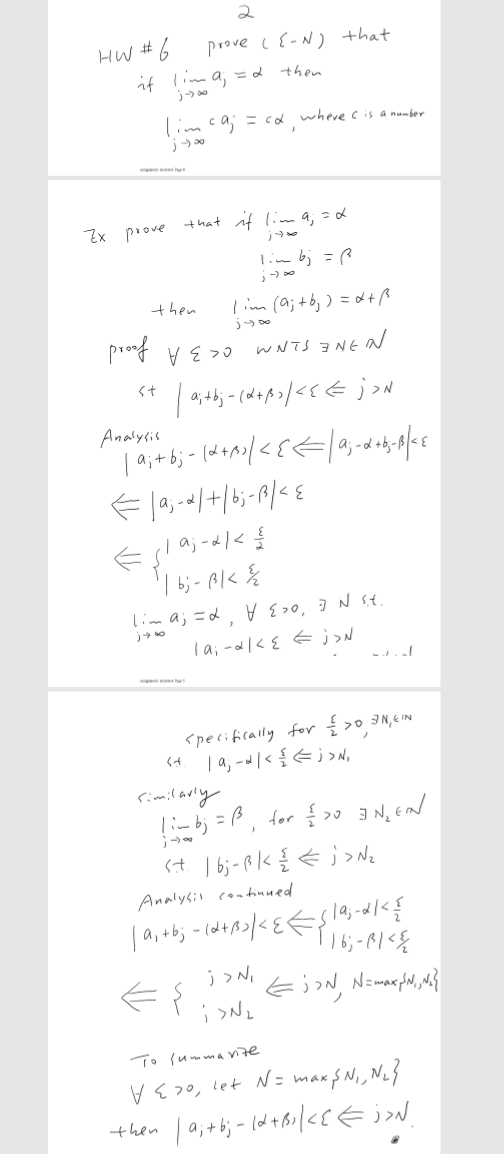 2
HW #6 prove (ε-N) that
if lim a_j = α then
j→∞
lim c a_j = cα, where c is a number
j→∞
Ex prove that if lim a_j = α
j→∞
lim b_j = β
j→∞
then lim (a_j+b_j) = α+β
j→∞
proof ∀ ε>0 WNTS ∃ N∈ℕ
st |a_j+b_j-(α+β)|<ε ⇐ j>N
Analysis
|a_j+b_j-(α+β)|<ε ⇐ |a_j-α+b_j-β|<ε
⇐ |a_j-α|+|b_j-β|<ε
⇐ { |a_j-α|<ε/2
|b_j-β|<ε/2
lim a_j = α, ∀ ε>0, ∃ N s.t.
j→∞
|a_j-α|<ε ⇐ j>N
specifically for ε/2>0, ∃N₁∈ℕ
s.t. |a_j-α|<ε/2 ⇐ j>N₁
similarly
lim b_j = β, for ε/2>0 ∃ N₂∈ℕ
j→∞
s.t. |b_j-β|<ε/2 ⇐ j>N₂
Analysis continued
|a_j+b_j-(α+β)|<ε ⇐ { |a_j-α|<ε/2
|b_j-β|<ε/2
⇐ { j>N₁ ⇐ j>N, N=max{N₁,N₂}
j>N₂
To summarize
∀ ε>0, let N = max{N₁,N₂}
then |a_j+b_j-(α+β)|<ε ⇐ j>N.